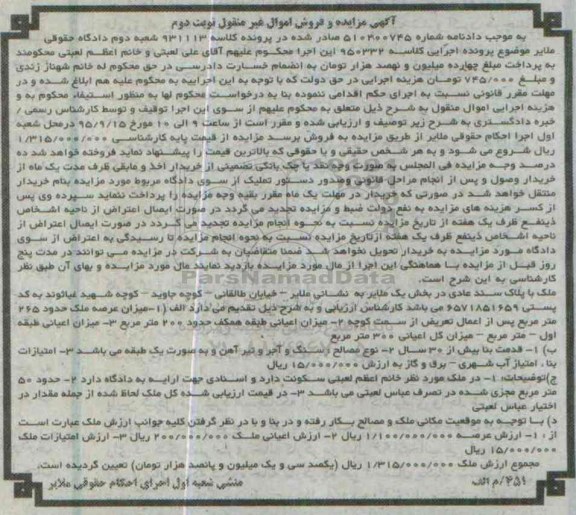 آگهی مزایده و فروش اموال غیر منقول نوبت دوم
به موجب دادنامه شماره ۵۱۰۲۰۰۷۴۵ صادر شده در پرونده کلاسه ۹۳۱۱۱۳ شعبه دوم دادگاه حقوقی
ملایر موضوع پرونده اجرایی کلاسه ۹۵۰۳۳۲ این اجرا محکوم علیهم آقای علی لعبتی و خانم اعظم لعبتی محکومند
به پرداخت مبلغ چهارده میلیون و نهصد هزار تومان به انضمام خسارت دادرسی در حق محکوم له خانم شهناز زندی
و مبلغ ۷۴۵/۰۰۰ تومان هزینه اجرایی در حق دولت که با توجه به این اجراییه به محکوم علیه هم ابلاغ شده و در
مهلت مقرر قانونی نسبت به اجرای حکم اقدامی ننموده بنا به درخواست محکوم لها به منظور استیفاء محکوم به و
هزینه اجرایی اموال منقول به شرح ذیل متعلق به محکوم علیهم از سوی این اجرا توقیف و توسط کارشناس رسمی /
خبره دادگستری به شرح زیر توصیف و ارزیابی شده و مقرر است از ساعت ۹ الی ۱۰ مورخ ۹۵/۹/۱۵ در محل شعبه
اول اجرا احکام حقوقی ملایر از طریق مزایده به فروش برسد مزایده از قیمت پایه کارشناسی ۱/۳۱۵/۰۰۰/۰۰۰
ریال شروع می شود و به هر شخص حقیقی و یا حقوقی که بالاترین قیمت را پیشنهاد نماید فروخته خواهد شد ده
درصد وجه مزایده فی المجلس به صورت وجه نقد یا چک بانکی تضمینی از خریدار اخذ و مابقی ظرف مدت یک ماه از
خریدار وصول و پس از انجام مراحل قانونی وصدور دستور تملیک از سوی دادگاه مربوط مورد مزایده بنام خریدار
منتقل خواهد شد در صورتی که خریدار در مهلت یک ماه مقرر بقیه وجه مزایده را پرداخت ننماید سپرده وی پس
از کسر هزینه های مزایده به نفع دولت ضبط و مزایده تجدید می گردد در صورت ایصال اعتراض از ناحیه اشخاص
ذینفع ظرف یک هفته از تاریخ مزایده نسبت به نحوه انجام مزایده تجدید می گردد در صورت ایصال اعتراض از
ناحیه اشخاص ذینفع ظرف یک هفته ازتاریخ مزایده نسبت به نحوه انجام مزایده تا رسیدگی به اعتراض از سوی
دادگاه مورد مزایده به خریدار تحویل نخواهد شد ضمنا متقاضیان به شرکت در مزایده می توانند در مدت پنج
روز قبل از مزایده با هماهنگی این اجرا از مال مورد مزایده بازدید نمایند مال مورد مزایده و بهای آن طبق نظر
کارشناسی به این شرح است.
ParsNamadData
ملک با پلاک سند عادی در بخش یک ملایر به نشانی ملایر – خیابان طالقانی – کوچه جاوید – کوچه شهید غیاثوند به کد
پستی ۶۵۷۱۸۵۱۶۵۹ می باشد کارشناس ارزیابی و به شرح ذیل تقدیم می دارد الف (۱-میزان عرصه ملک حدود ۲۶۵
متر مربع پس از اعمال تعریض از سمت کوچه ۲- میزان اعیانی طبقه همکف حدود ۲۰۰ متر مربع ۳- میزان اعیانی طبقه
اول – متر مربع – میزان کل اعیانی ۳۰۰ متر مربع
ب) ۱- قدمت بنا بیش از ۳۰ سال ۲- نوع مصالح سنگ و آجر و تیر آهن و به صورت یک طبقه می باشد ۳- امتیازات
بنا، امتیاز آب شهری – برق و گاز به ارزش ۱۵/۰۰۰/۰۰۰ ریال
ج)توضیحات: ۱- در ملک مورد نظر خانم اعظم لعبتی سکونت دارد و اسنادی جهت ارایه به دادگاه دارد ۲- حدود ۵۰
متر مربع مجزی شده در تصرف عباس لعبتی می باشد ۳- در قیمت ارزیابی شده کل ملک لحاظ شده از جمله مقدار در
اختیار عباس لعبتی
د) با توجه به موقعیت مکانی ملک و مصالح بکار رفته و در بنا و با در نظر گرفتن کلیه جوانب ارزش ملک عبارت است
از ، ۱- ارزش عرصه ۱/۱۰۰/۰۰۰/۰۰۰ ریال ۲- ارزش اعیانی ملک ۲۰۰/۰۰۰/۰۰۰ ریال ۳- ارزش امتیازات ملک
۱۵/۰۰۰/۰۰۰ ریال
مجموع ارزش ملک ۱/۳۱۵/۰۰۰/۰۰۰ ریال (یکصد سی و یک میلیون و پانصد هزار تومان) تعیین گردیده است.
۴۵۱/م الف منشی شعبه اول اجرای احکام حقوقی ملایر